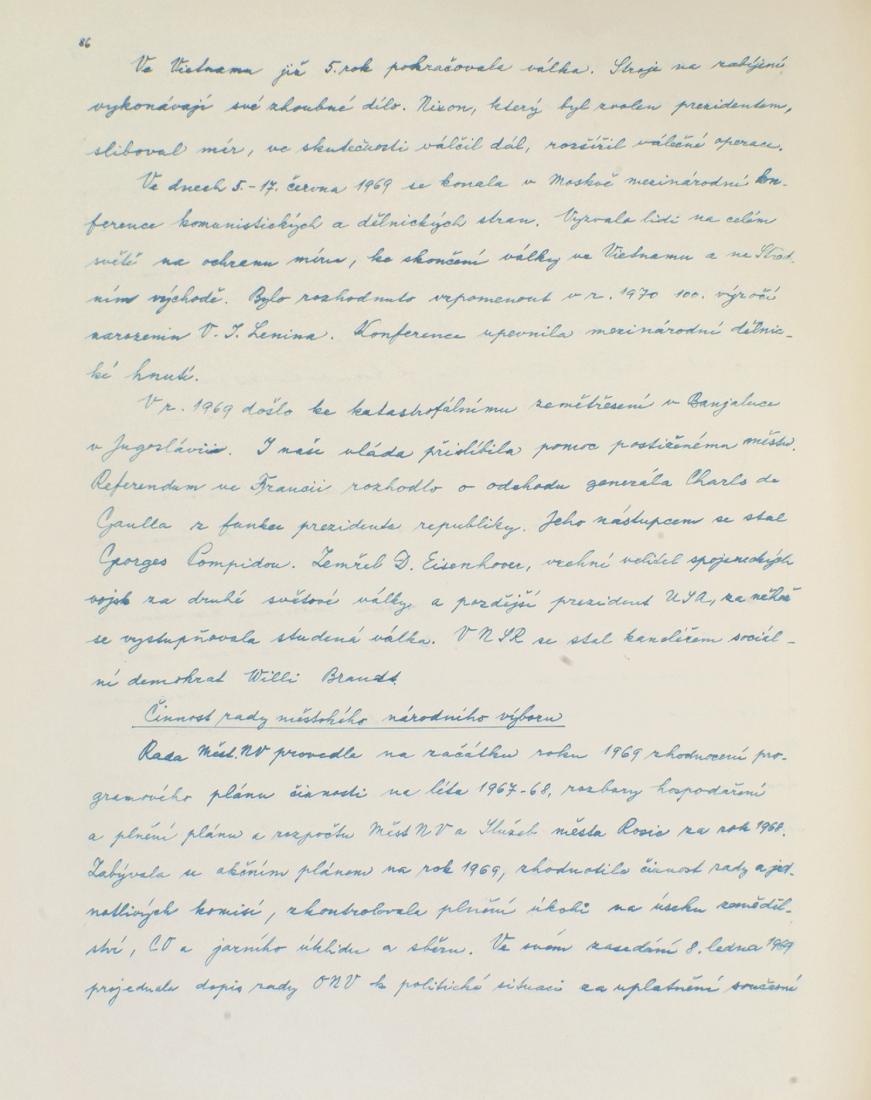 86
Ve Vietnamu již 5. rok pokračovala válka. Stroje na zabíjení
vykonávají své zhoubné dílo. Nixon, který byl zvolen prezidentem,
sliboval mír, ve skutečnosti válčil dál, rozšířil válečné operace.
Ve dnech 5.-17. června 1969 se konala v Moskvě mezinárodní kon-
ference komunistických a dělnických stran. Vyzvala lidi na celém
světě na ochranu míru, ke skončení války ve Vietnamu a na Střed-
ním východě. Bylo rozhodnuto vzpomenout v r. 1970 100. výročí
narozenin V. I. Lenina. Konference upevnila mezinárodní dělnic-
ké hnutí.
V r. 1969 došlo ke katastrofálnímu zemětřesení v Banjaluce
v Jugoslávii. I naše vláda přislíbila pomoc postiženému městu.
Referendum ve Francii rozhodlo o odchodu generála Charls de
Gaulla z funkce prezidenta republiky. Jeho nástupcem se stal
Georges Pompidou. Zemřel D. Eisenhover, vrchní velitel spojeneckých
vojsk za druhé světové války a pozdější prezident USA, za něhož
se vystupňovala studená válka. V NSR se stal kancléřem sociál-
ní demokrat Willi Brandt.
Činnost rady městského národního výboru
Rada Měst.NV provedla na začátku roku 1969 zhodnocení pro-
gramového plánu činnosti na léta 1967-68, rozbory hospodaření
a plnění plánu a rozpočtu Měst NV a Služeb města Rosic za rok 1968.
Zabývala se akčním plánem na rok 1969, zhodnotila činnost rady a jed-
notlivých komisí, zkontrolovala plnění úkolů na úseku zeměděl-
ství, CO a jarního úklidu a sběru. Ve svém zasedání 8. ledna 1969
projednala dopis rady ONV k politické situaci za uplatnění současné